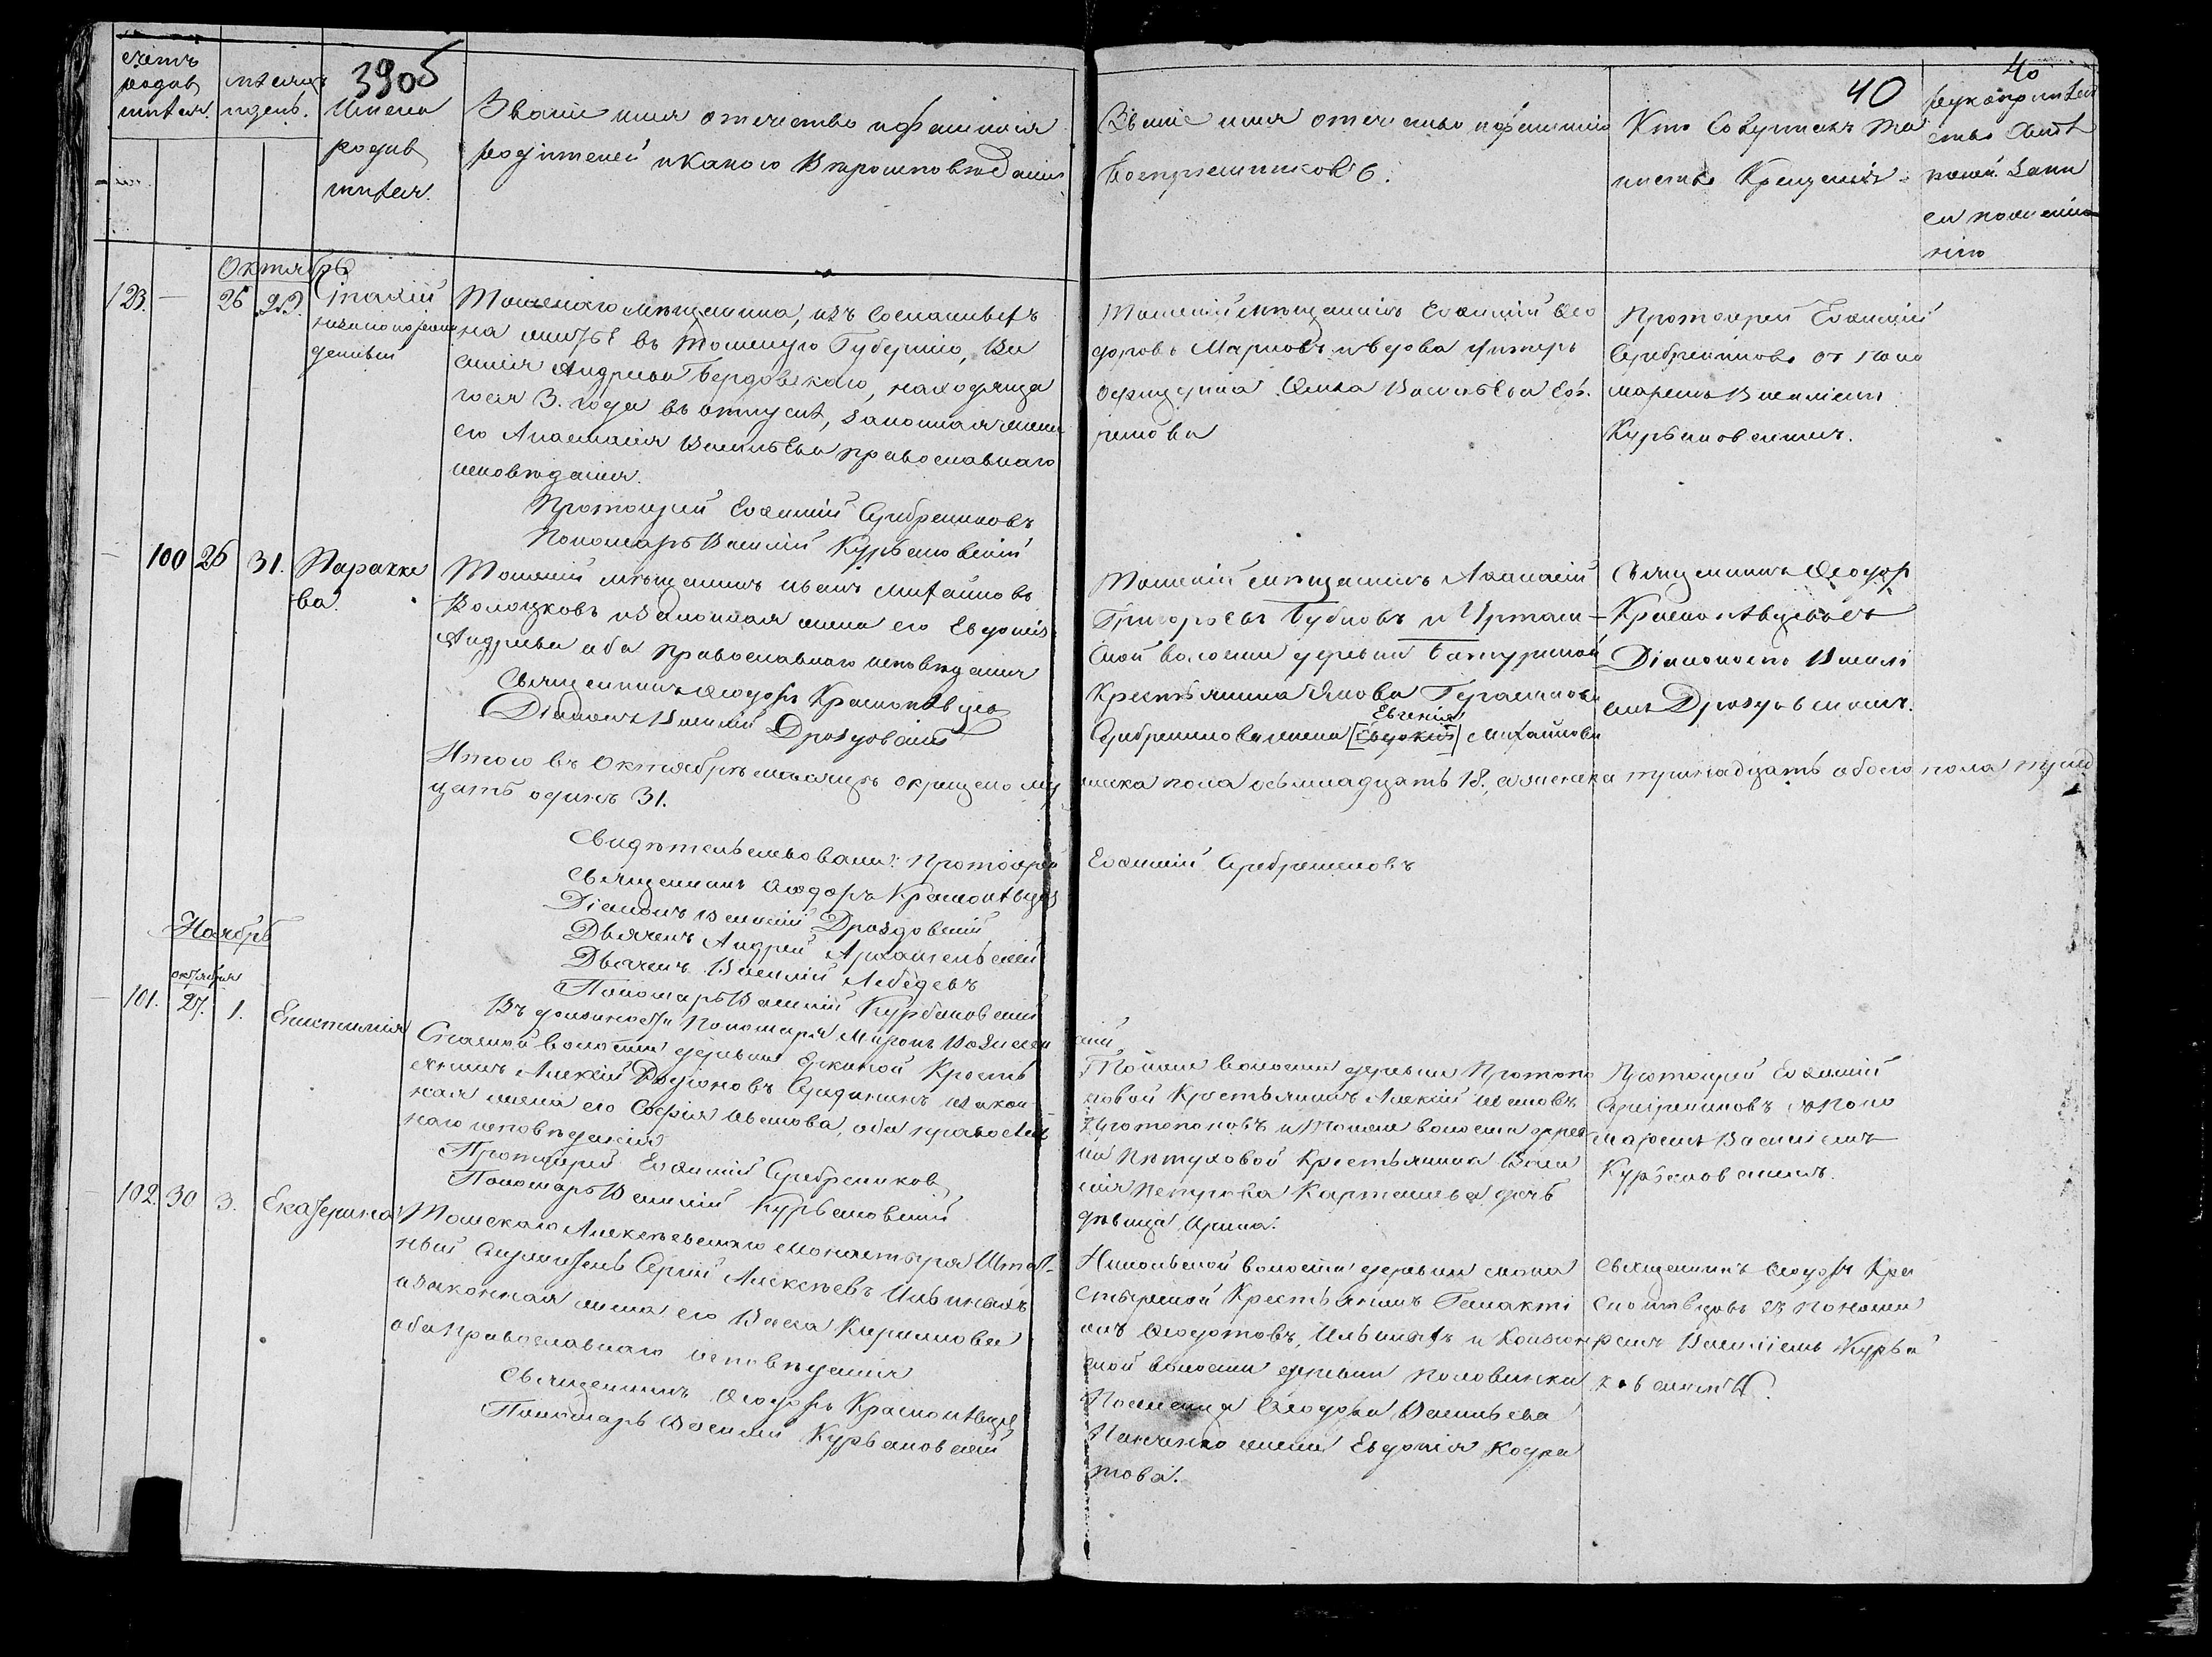 счетъ
родив
шихся.
мѣсяцъ
и день.
39об
Имена
родив
шихся.
Званіе имя отчество и фамилія
родителей и какого вѣроисповѣданія
Званіе имя отчество и фамилія
воспріемниковъ.
40
Кто совершалъ таи
инство Крещенія.
40
рукоприклад
ство свидѣ
телей записи
по желанію
Октябрь
123. — 26 29.
Ипатій
незаконорож
денный
Томскаго мѣщанина, изъ сосланныхъ
на житьё въ Томскую Губернію, Ва
силія Андреева Бердовскаго, находяща
гося 3. года въ отпускѣ, законная жена
его Анастасія Васильева православнаго
исповѣданія.
Протоіерей Евѳимій Серебрениковъ
Пономарь Василій Курбановскій
Томскій мѣщанинъ Евѳимій Ѳео
доровъ Марковъ и вдова унтеръ
офицерша Анна Васильева Еф
ремова
Протоіерей Евѳимій
Серебрениковъ съ поно
маремъ Василіемъ
Курбановскимъ.
— 100 26 31. Параске
ва.
Томскій мѣщанинъ Иванъ Михайловъ
Волочковъ и законная жена его Евдокія
Андреева оба православнаго исповѣданія
Священникъ Ѳеодоръ Краснопѣвцевъ
Діаконъ Василій Дроздовскій
Томскій мѣщанинъ Аѳанасій
Григорьевъ Бубновъ и Иртам-
ской волости деревни Батуриной
Крестьянина Якова Герасимова
Евгенія
Серебреникова жена [Евдокія] Михайлова
Священникъ Ѳеодор
Краснопѣвцевъ съ
Діакономъ Василі
емъ Дроздовскимъ.
Итого въ Октябрѣ мѣсяцѣ окрещено мужеска пола восьмнадцать 18., а женска тринадцать обоего пола трид
цать одинъ 31.
Свидѣтельствовали: Протоіерей Евѳимій Серебрениковъ
Священникъ Ѳеодоръ Краснопѣвцевъ
Діаконъ Василій Дроздовскій
Дьячекъ Андрей Архангельскій
Дьячекъ Василій Лебедевъ
Пономарь Василій Курбановскій
Въ должности Пономаря Миронъ Вознесенскій
Ноябрь
октября
101. 27. 1. Епистимія
Спасской волости деревни Ежиной Кресть
янинъ Алексій Родіоновъ Середининъ и закон
ная жена его Софія Иванова, оба православ
наго исповѣданія
Протоіерей Евѳимій Серебрениковъ
Пономарь Василій Курбановскій
Тойской волости деревни Протопо
повой Крестьянинъ Алексій Ивановъ
Протопоповъ и Тойской волости дерев
ни Пѣтуховой Крестьянина Васи
лія Петрова Карташева дочь
дѣвица Ирина.
Протоіерей Евѳимій
Серебрениковъ съ Поно
маремъ Василіемъ
Курбановскимъ.
102. 30 3. Екатерина
Томскаго Алексѣевскаго Монастыря Штат-
ный служитель Сергій Алексѣевъ Ильиныхъ
и законная жена его Васса Кирилова
оба православнаго исповѣданія
Священникъ Ѳеодоръ Краснопѣвцевъ
Пономарь Василій Курбановскій
Николаевской волости деревни мона
стырской Крестьянинъ Галакті
онъ Ѳеодотовъ Ильиныхъ и
ской волости деревни Половинки
Поселенца Ѳеодора Васильева
Панченко жена Евдокія Кодра
това.
Священникъ Ѳеодоръ Кра
снопѣвцевъ съ Понома
ремъ Василіемъ Курба
новскимъ.